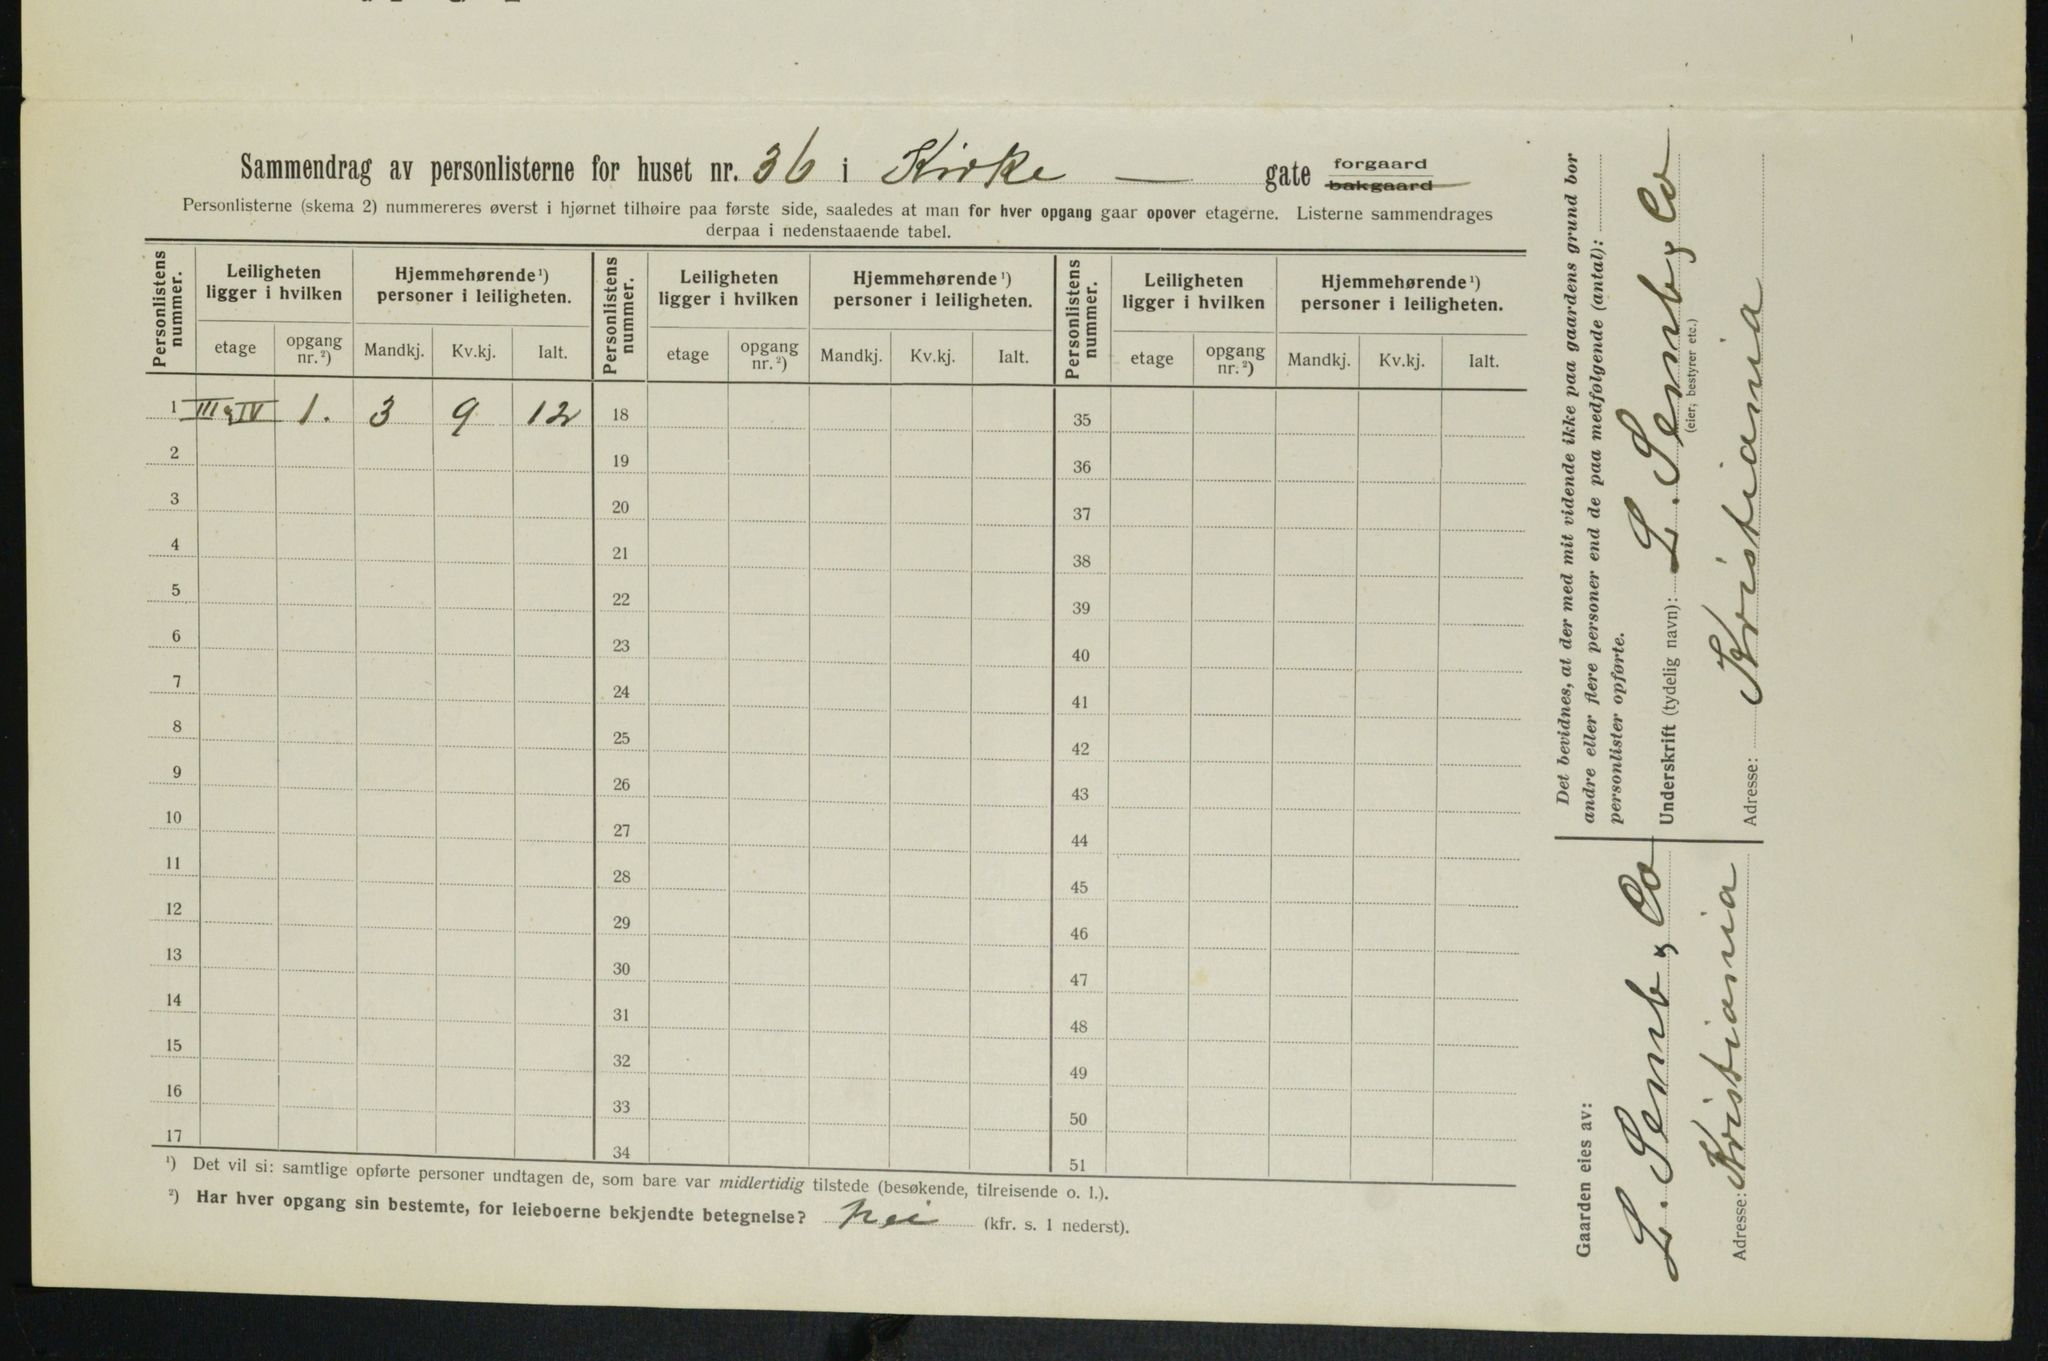 Sammendrag av personlisterne for huset nr. 36 i Kirke — gate forgaard bakgaard
Personlisterne (skema 2) nummereres øverst i hjørnet tilhøire paa første side, saaledes at man for hver opgang gaar opover etagerne. Listerne sammendrages
derpaa i nedenstaaende tabel.
Personlistens nummer. Leiligheten ligger i hvilken Hjemmehørende¹) personer i leiligheten. Personlistens nummer. Leiligheten ligger i hvilken Hjemmehørende¹) personer i leiligheten. Personlistens nummer. Leiligheten ligger i hvilken Hjemmehørende¹) personer i leiligheten.
etage opgang nr.²) Mandkj. Kv.kj. Ialt. etage opgang nr.²) Mandkj. Kv.kj. Ialt. etage opgang nr.²) Mandkj. Kv.kj. Ialt.
1 III & IV 1. 3 9 12 18 35
2 19 36
3 20 37
4 21 38
5 22 39
6 23 40
7 24 41
8 25 42
9 26 43
10 27 44
11 28 45
12 29 46
13 30 47
14 31 48
15 32 49
16 33 50
17 34 51
¹) Det vil si: samtlige opførte personer undtagen de, som bare var midlertidig tilstede (besøkende, tilreisende o. l.).
²) Har hver opgang sin bestemte, for leieboerne bekjendte betegnelse? Nei (kfr. s. 1 nederst).
Gaarden eies av:
L. Semb & Co
Adresse: Kristiania
Det bevidnes, at der med mit vidende ikke paa gaardens grund bor
andre eller flere personer end de paa medfølgende (antal):
personlister opførte.
Underskrift (tydelig navn): L. Semb & Co
(eier, bestyrer etc.)
Adresse: Kristiania